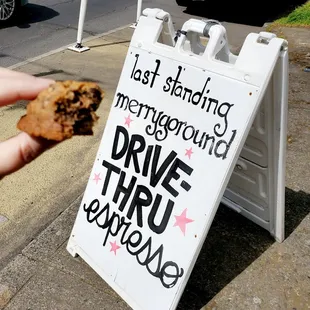 last standing
merrygoround
DRIVE-
THRU
espresso